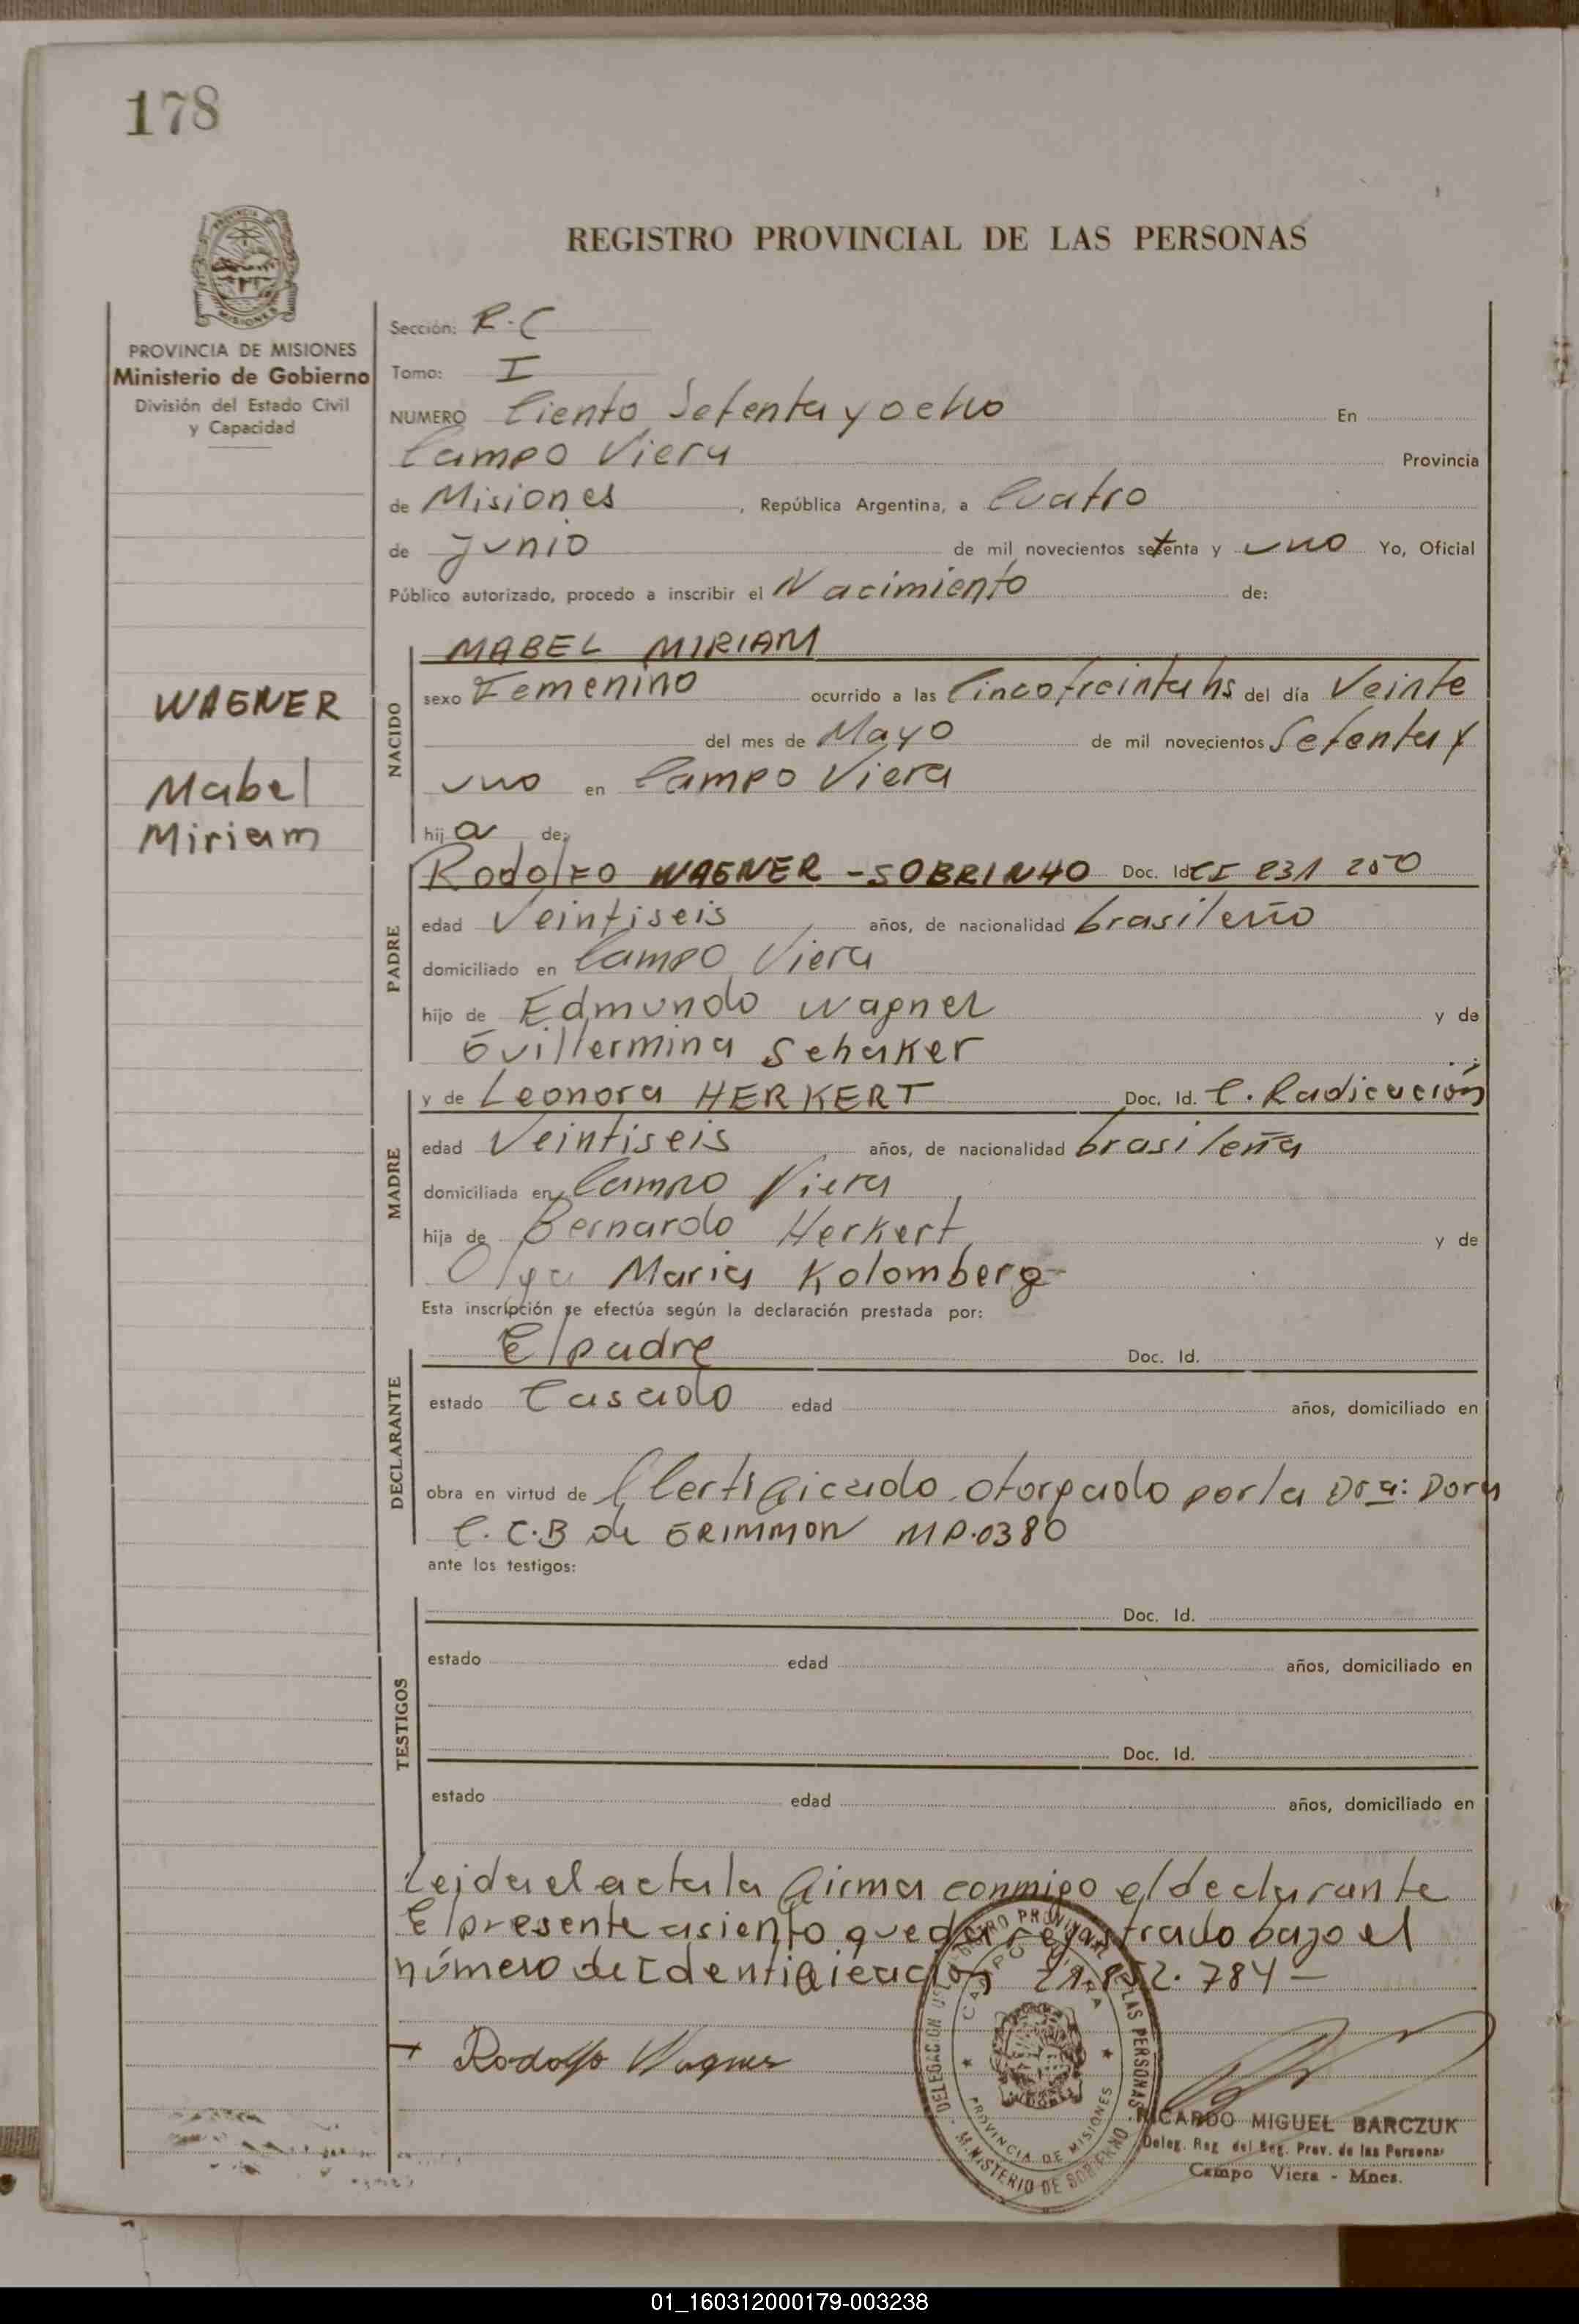 178
REGISTRO PROVINCIAL DE LAS PERSONAS
PROVINCIA DE MISIONES
Ministerio de Gobierno
División del Estado Civil
y Capacidad
WAGNER
Mabel
Miriam
Sección: R.C
Tomo: I
NUMERO Ciento Setenta y ocho En
Campo Viera Provincia
de Misiones, República Argentina, a Cuatro
de junio de mil novecientos setenta y uno Yo, Oficial
Público autorizado, procedo a inscribir el Nacimiento de:
NACIDO
MABEL MIRIAM
sexo Femenino ocurrido a las Cinco treinta hs del día Veinte
del mes de Mayo de mil novecientos Setenta y
uno en Campo Viera
hij a de:
PADRE
Rodolfo WAGNER - SOBRINHO Doc. Id. CI 231 250
edad Veintiseis años, de nacionalidad brasileño
domiciliado en Campo Viera
hijo de Edmundo Wagner y de
Guillermina Schaker
MADRE
y de Leonora HERKERT Doc. Id. C. Radicación
edad Veintiseis años, de nacionalidad brasileña
domiciliada en Campo Viera
hija de Bernardo Herkert y de
Olga Maria Kolomberg
Esta inscripción se efectúa según la declaración prestada por:
DECLARANTE
El padre Doc. Id.
estado Casado edad años, domiciliado en
obra en virtud de Certificado otorgado por la Dra: Dora
C. C.B de GRIMMON MP.0380
ante los testigos:
TESTIGOS
Doc. Id.
estado edad años, domiciliado en
Doc. Id.
estado edad años, domiciliado en
Leida el acta la firma conmigo el declarante
El presente asiento queda registrado bajo el
número de Identificación 21.852.784 -
Rodolfo Wagner
CAMPO VIERA
PROVINCIA DE MISIONES
MINISTERIO DE GOBIERNO
RICARDO MIGUEL BARCZUK
Deleg. Reg. del Reg. Prov. de las Personas
Campo Viera - Mnes.
01_160312000179-003238